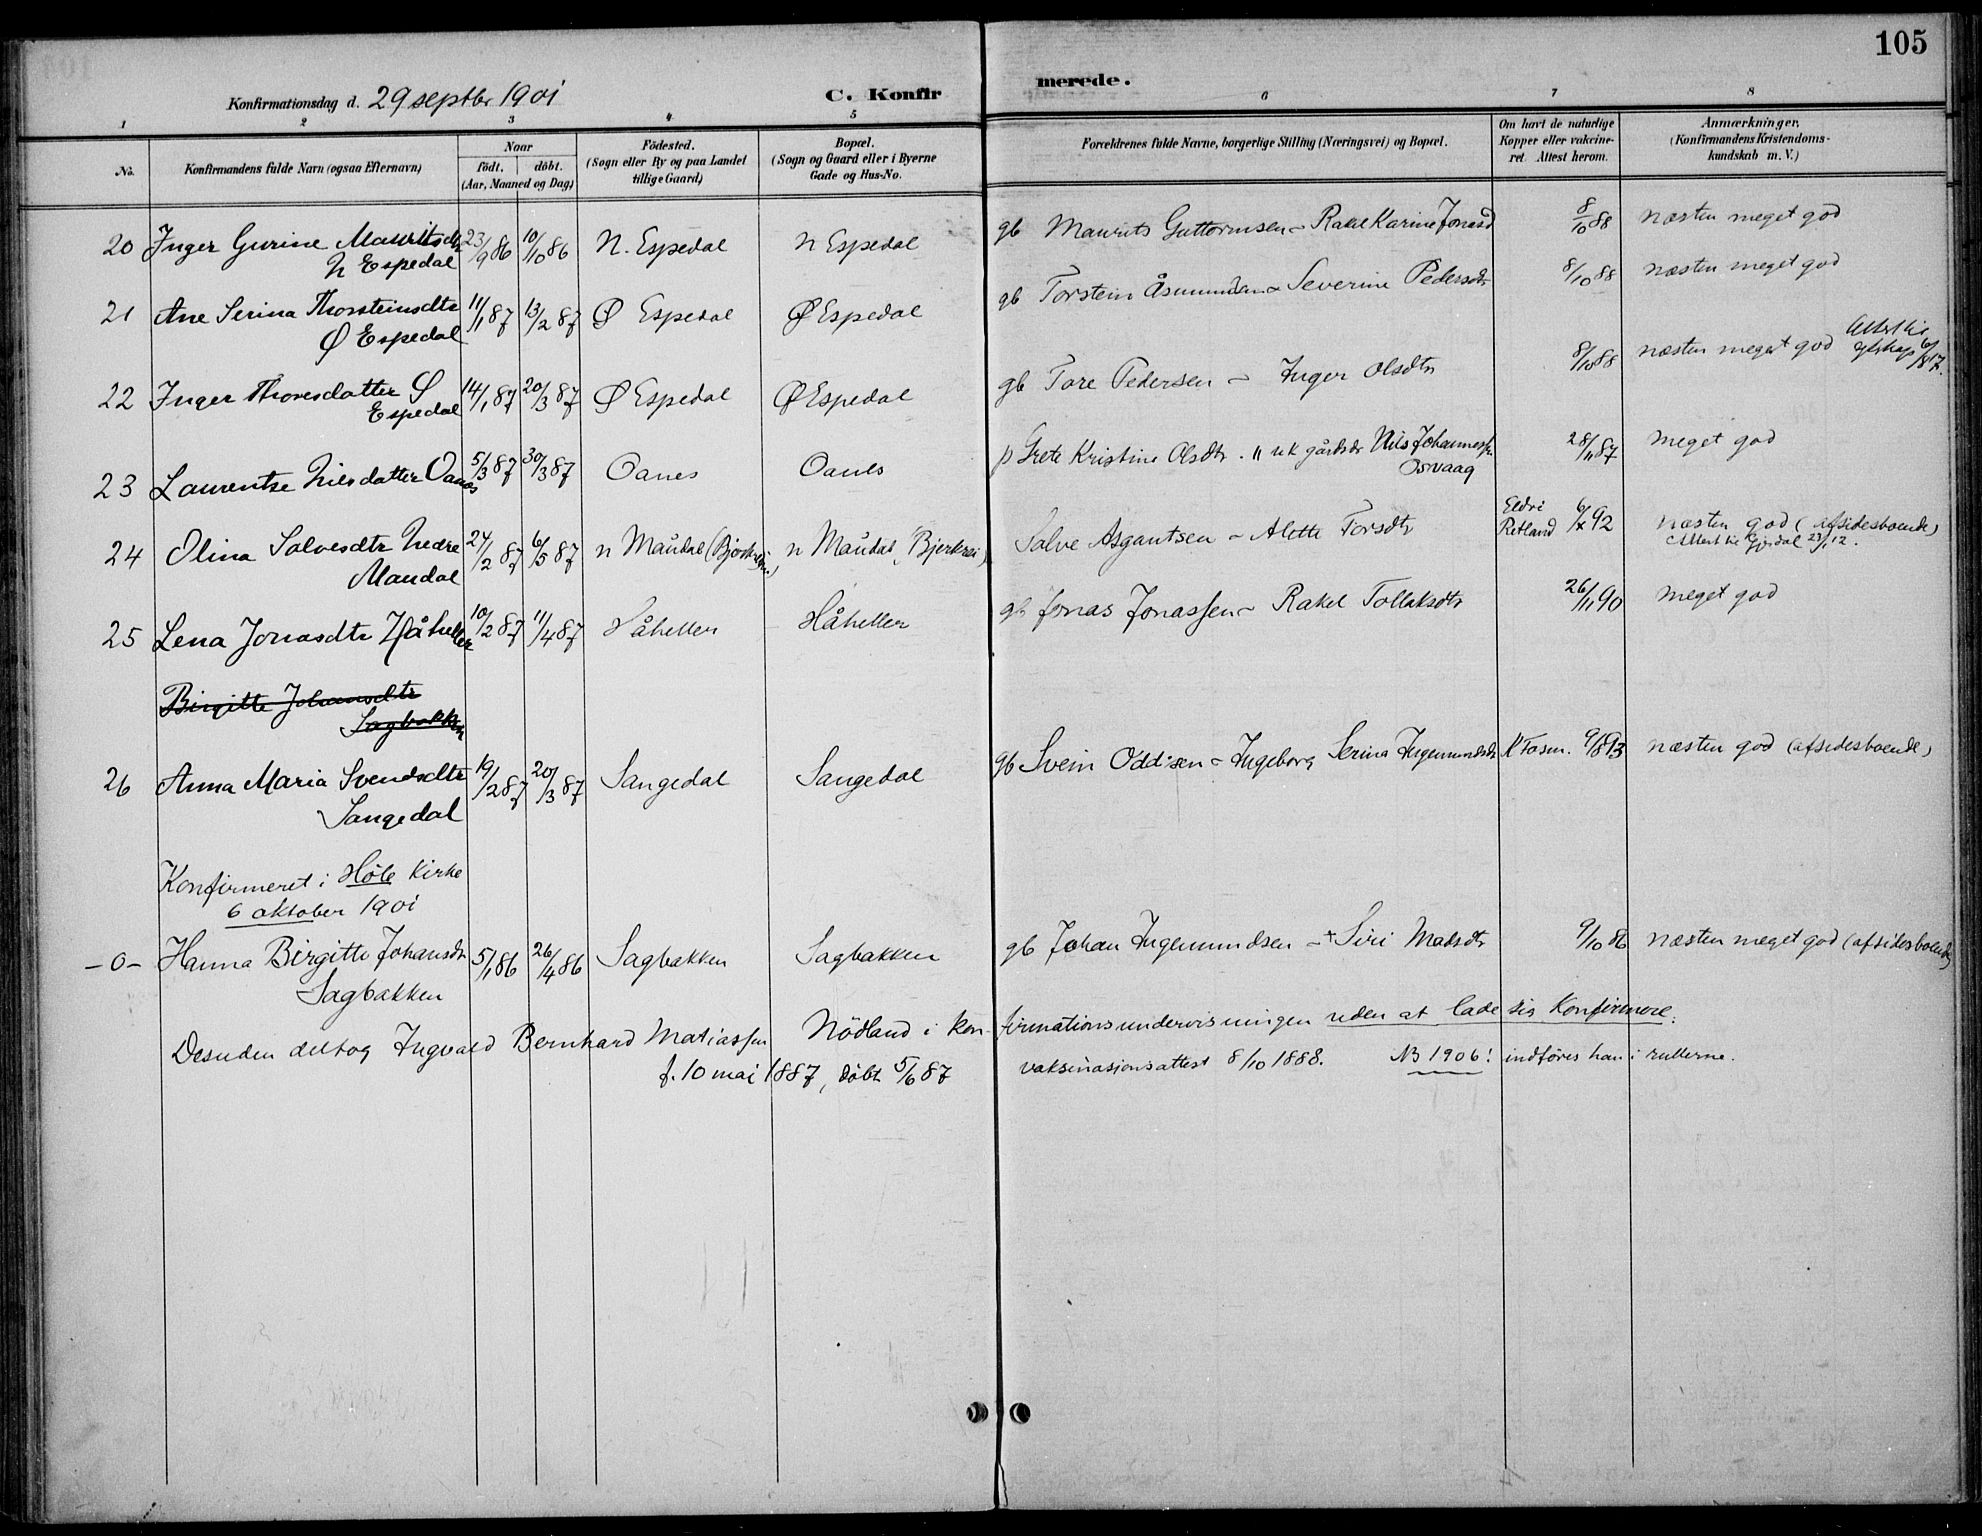 105
Konfirmationsdag d. 29 septbr 1901 C. Konfirmerede.
1 2 3 4 5 6 7 8
No. Konfirmandens fulde Navn (ogsaa Efternavn) Naar födt. döbt. (Aar, Maaned og Dag) Födested. (Sogn eller By og paa Landet tillige Gaard) Bopæl. (Sogn og Gaard eller i Byerne Gade og Hus-No. Forældrenes fulde Navne, borgerlige Stilling (Næringsvei) og Bopæl. Om havt de naturlige Kopper eller vakcineret. Attest herom. Anmærkninger, (Konfirmandens Kristendomskundskab m. V.)
20 Inger Gurine Mauritsdtr 23/9 86 10/10 86 N. Espedal N Espedal gb Maurits Guttormsen - Rakel Karine Jonasd 8/10 88 næsten meget god
N Espedal
21 Ane Serina Thorsteinsdtr 11/1 87 13/2 87 Ø Espedal Ø Espedal gb Torstein Åsmundsen - Severine Pedersdtr 8/10 88 næsten meget god
Ø Espedal
22 Inger Thoresdatter Ø 14/1 87 20/3 87 Ø Espedal Ø Espedal gb Tore Pedersen - Inger Olsdtr 8/10 88 næsten meget god Attest til 6/8 17.
Espedal
23 Laurentse Nilsdatter Oanes 5/3 87 30/3 87 Oanes Oanes p Grete Kristine Olsdtr. " uk gårdsbr Nils Johannessen 28/11 87 meget god
Osvaag
24 Olina Salvesdtr Nedre 27/2 87 6/5 87 n Maudal (Bjerkrei.) n Maudal (Bjerkrei) Salve Asgautsen - Alette Torsdtr Eldri Retland 6/x 92 næsten god (afsidesboende)
Maudal Attest til Gjesdal 23/1 12.
25 Lena Jonasdtr Håheller 10/2 87 11/4 87 Håheller Håheller gb Jonas Jonassen - Rakel Tollaksdtr 26/11 90 meget god
Birgitte Johansdtr
Sagbakken
26 Anna Maria Svendsdtr 19/2 87 20/3 87 Sangedal Sangedal gb Svein Oddsen - Ingeborg Serina Ingemundsdtr K Tosn. 9/8 93 næsten god (afsidesboende)
Sangedal
Konfirmeret i Høle Kirke
6 oktober 1901
-0- Hanna Birgitte Johansdtr 5/1 86 26/4 86 Sagbakken Sagbakken gb Johan Ingemundsen - + Siri Madsdtr 9/10 86 næsten meget god (afsidesboende)
Sagbakken
Desuden deltog Ingvald Bernhard Matiassen Nödland i konfirmationsundervisningen uden at lade sig konfirmere.
f. 10 mai 1887, döbt 5/6 87 vaksinasjonsattest 8/10 1888. NB 1906! indföres han i rullerne.